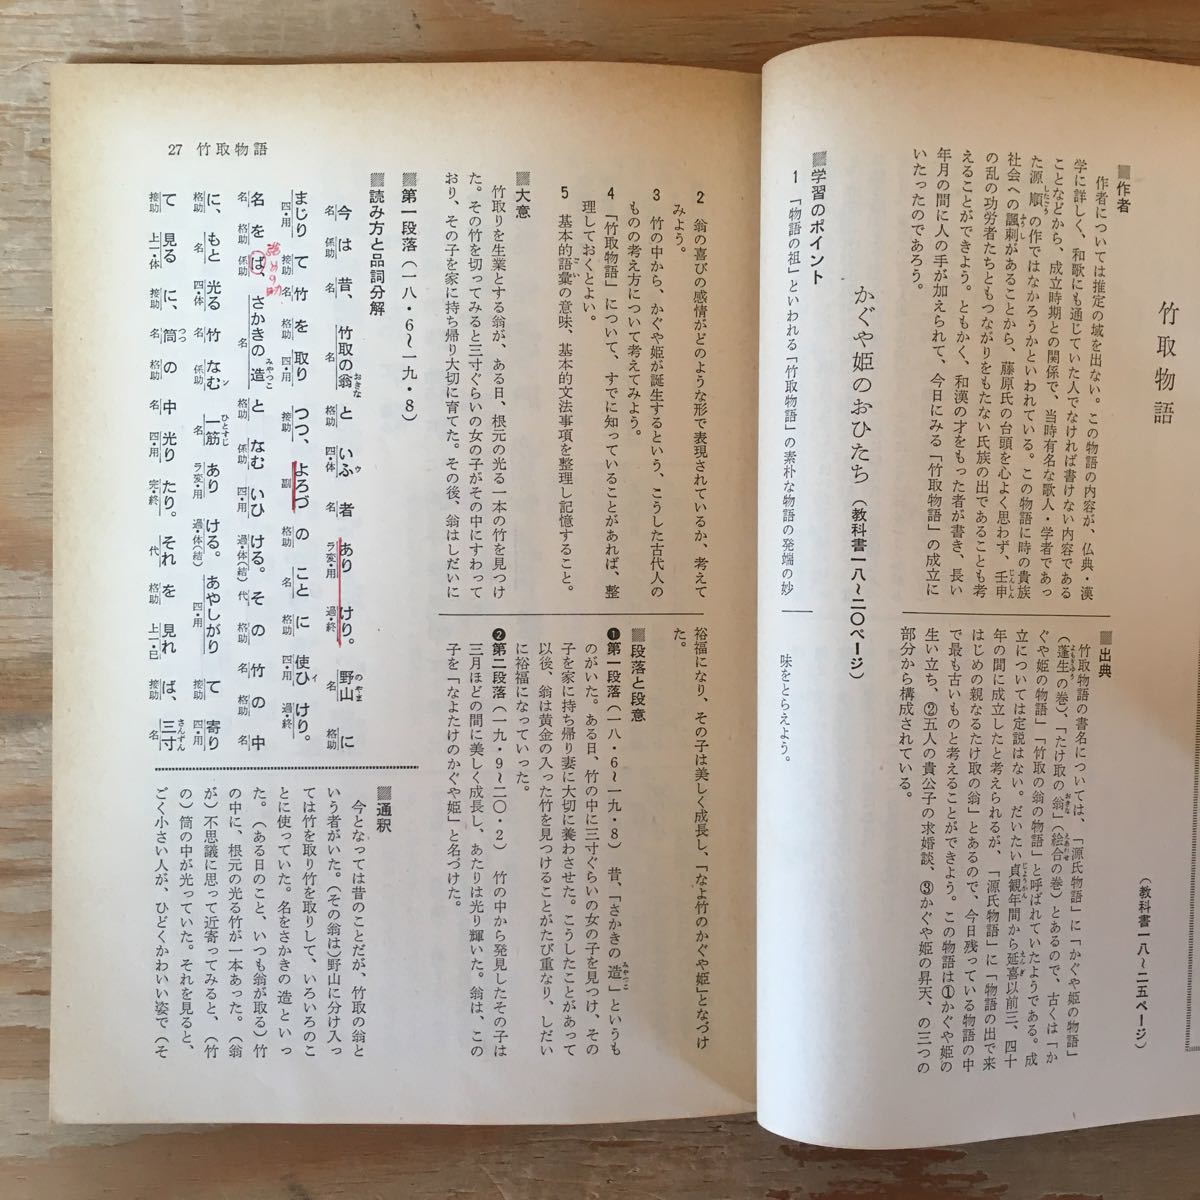 竹取物語
(教科書一八〜二五ページ)
■作者
作者については推定の域を出ない。この物語の内容が、仏典・漢
学に詳しく、和歌にも通じていた人でなければ書けない内容である
ことなどから、成立時期との関係で、当時有名な歌人・学者であっ
た源順の作ではなかろうかといわれている。この物語に時の貴族
社会への諷刺があることから、藤原氏の台頭を心よく思わず、壬申
の乱の功労者たちともつながりをもたない氏族の出であることも考
えることができよう。ともかく、和漢の才をもった者が書き、長い
年月の間に人の手が加えられて、今日にみる「竹取物語」の成立に
いたったのであろう。
■出典
竹取物語の書名については、「源氏物語」に「かぐや姫の物語」
(蓬生の巻)、「たけ取の翁」(絵合の巻)とあるので、古くは「か
ぐや姫の物語」「竹取の翁の物語」と呼ばれていたようである。成
立については定説はない。だいたい貞観年間から延喜以前三、四十
年の間に成立したと考えられるが、「源氏物語」に「物語の出で来
はじめの親なるたけ取の翁」とあるので、今日残っている物語の中
で最も古いものと考えることができよう。この物語は①かぐや姫の
生い立ち、②五人の貴公子の求婚談、③かぐや姫の昇天、の三つの
部分から構成されている。
かぐや姫のおひたち(教科書一八〜二〇ページ)
■学習のポイント
1 「物語の祖」といわれる「竹取物語」の素朴な物語の発端の妙
味をとらえよう。
2 翁の喜びの感情がどのような形で表現されているか、考えて
みよう。
3 竹の中から、かぐや姫が誕生するという、こうした古代人の
ものの考え方について考えてみよう。
4 「竹取物語」について、すでに知っていることがあれば、整
理しておくとよい。
5 基本的語彙の意味、基本的文法事項を整理し記憶すること。
■大意
竹取りを生業とする翁が、ある日、根元の光る一本の竹を見つけ
た。その竹を切ってみると三寸ぐらいの女の子がその中にすわって
おり、その子を家に持ち帰り大切に育てた。その後、翁はしだいに
裕福になり、その子は美しく成長し、「なよ竹のかぐや姫」となづけ
た。
■段落と段意
❶第一段落(一八・6〜一九・8) 昔、「さかきの造」というも
のがいた。ある日、竹の中に三寸ぐらいの女の子を見つけ、その
子を家に持ち帰り妻に大切に養わさせた。こうしたことがあって
以後、翁は黄金の入った竹を見つけることがたび重なり、しだい
に裕福になっていった。
❷第二段落(一九・9〜二〇・2) 竹の中から発見したその子は
三月ほどの間に美しく成長し、あたりは光り輝いた。翁は、この
子を「なよたけのかぐや姫」と名づけた。
■第一段落(一八・6〜一九・8)
■読み方と品詞分解
今は昔、竹取の翁といふ者ありけり。野山に
まじりて竹を取りつつ、よろづのことに使ひけり。
名をば、さかきの造となむいひける。その竹の中
に、もと光る竹なむ一筋ありける。あやしがりて寄り
て見るに、筒の中光りたり。それを見れば、三寸
強めの助
■通釈
今となっては昔のことだが、竹取の翁と
いう者がいた。(その翁は)野山に分け入っ
ては竹を取り竹を取りして、いろいろのこ
とに使っていた。名をさかきの造といっ
た。(ある日のこと、いつも翁が取る)竹
の中に、根元の光る竹が一本あった。(翁
が)不思議に思って近寄ってみると、(竹
の)筒の中が光っていた。それを見ると、
ごく小さい人が、ひどくかわいい姿で(そ
27 竹取物語